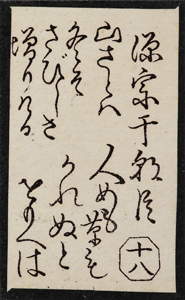 源宗于朝臣
山さとハ
冬そ
さびしさ
増りける
人めも草も
かれぬと
おもへは
十八